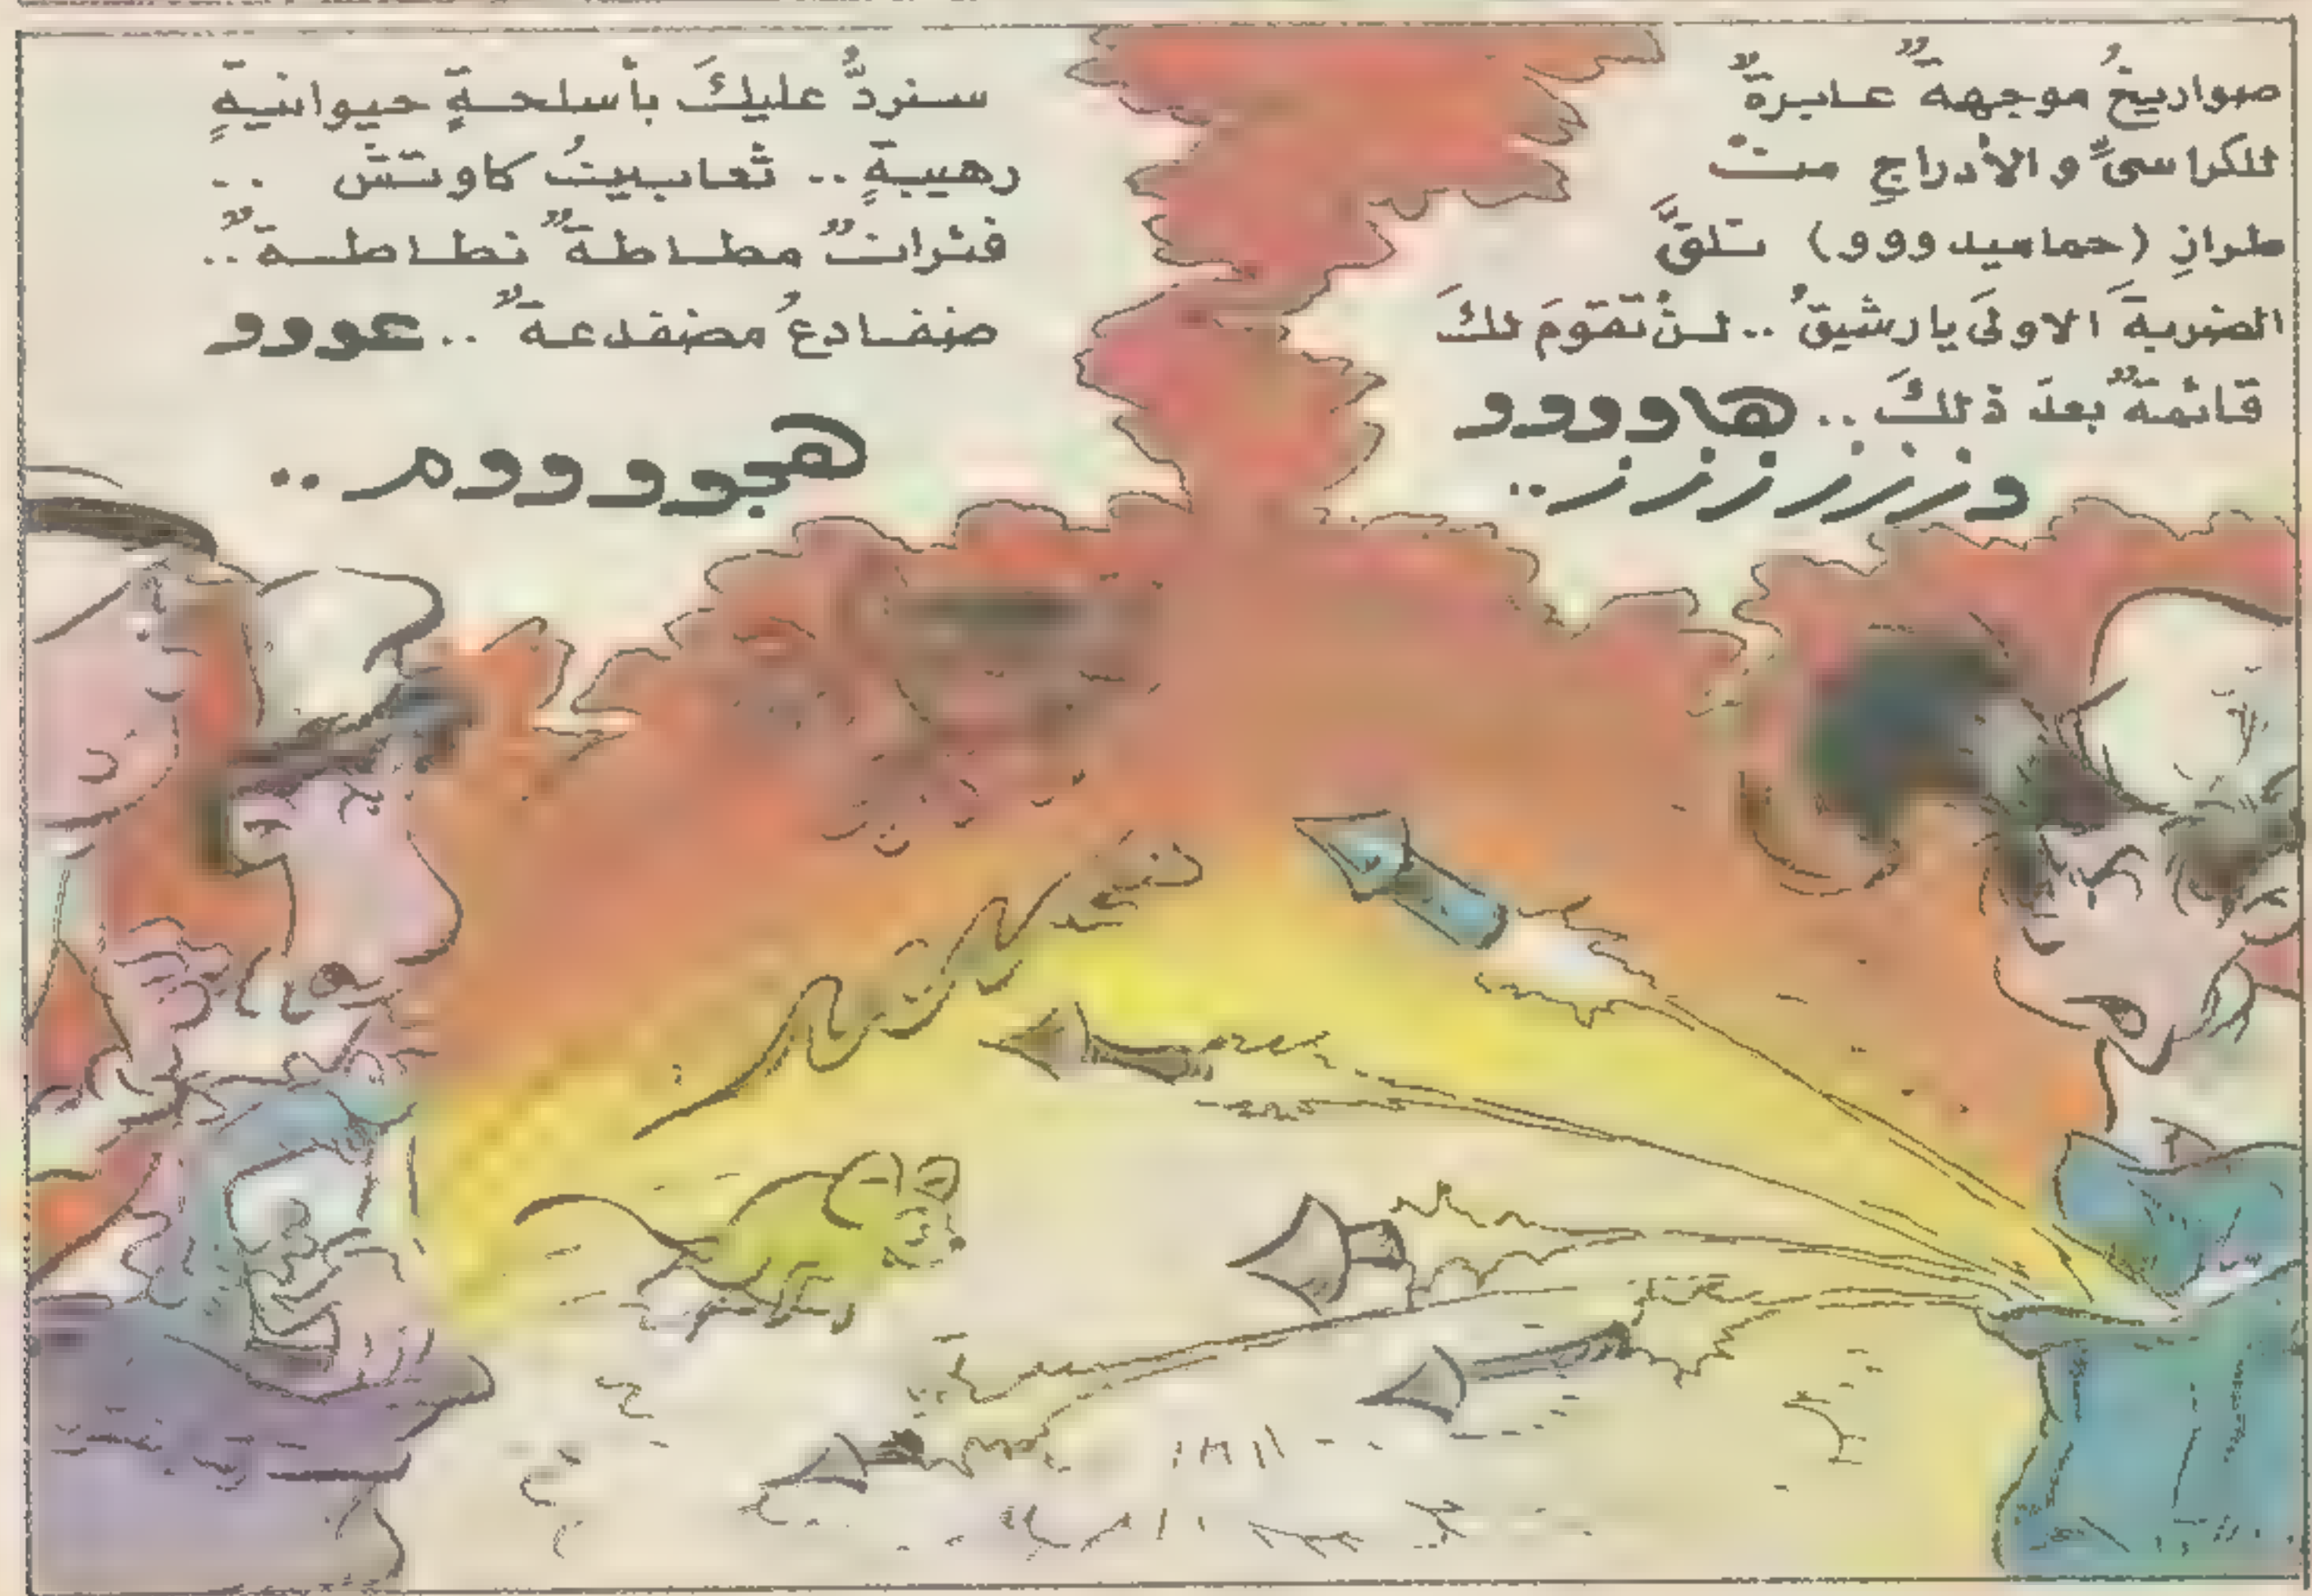 صواريخُ موجهةٌ عابرةٌ
للكراسىِّ والأدراجِ من
طرازِ (حماسيدووو) تلقَّ
الضربةَ الاولىَ يارشيقُ .. لنْ تقومَ لكَ
قائمةٌ بعدَ ذلكَ .. هاوووو
دزززززز..
سنردُّ عليكَ بأسلحةٍ حيوانيةٍ
رهيبةٍ .. ثعابينُ كاوتش ..
فئرانٌ مطاطةٌ نطاطةٌ ..
ضفادعُ مضفدعةٌ .. عووو
هجووووم ..